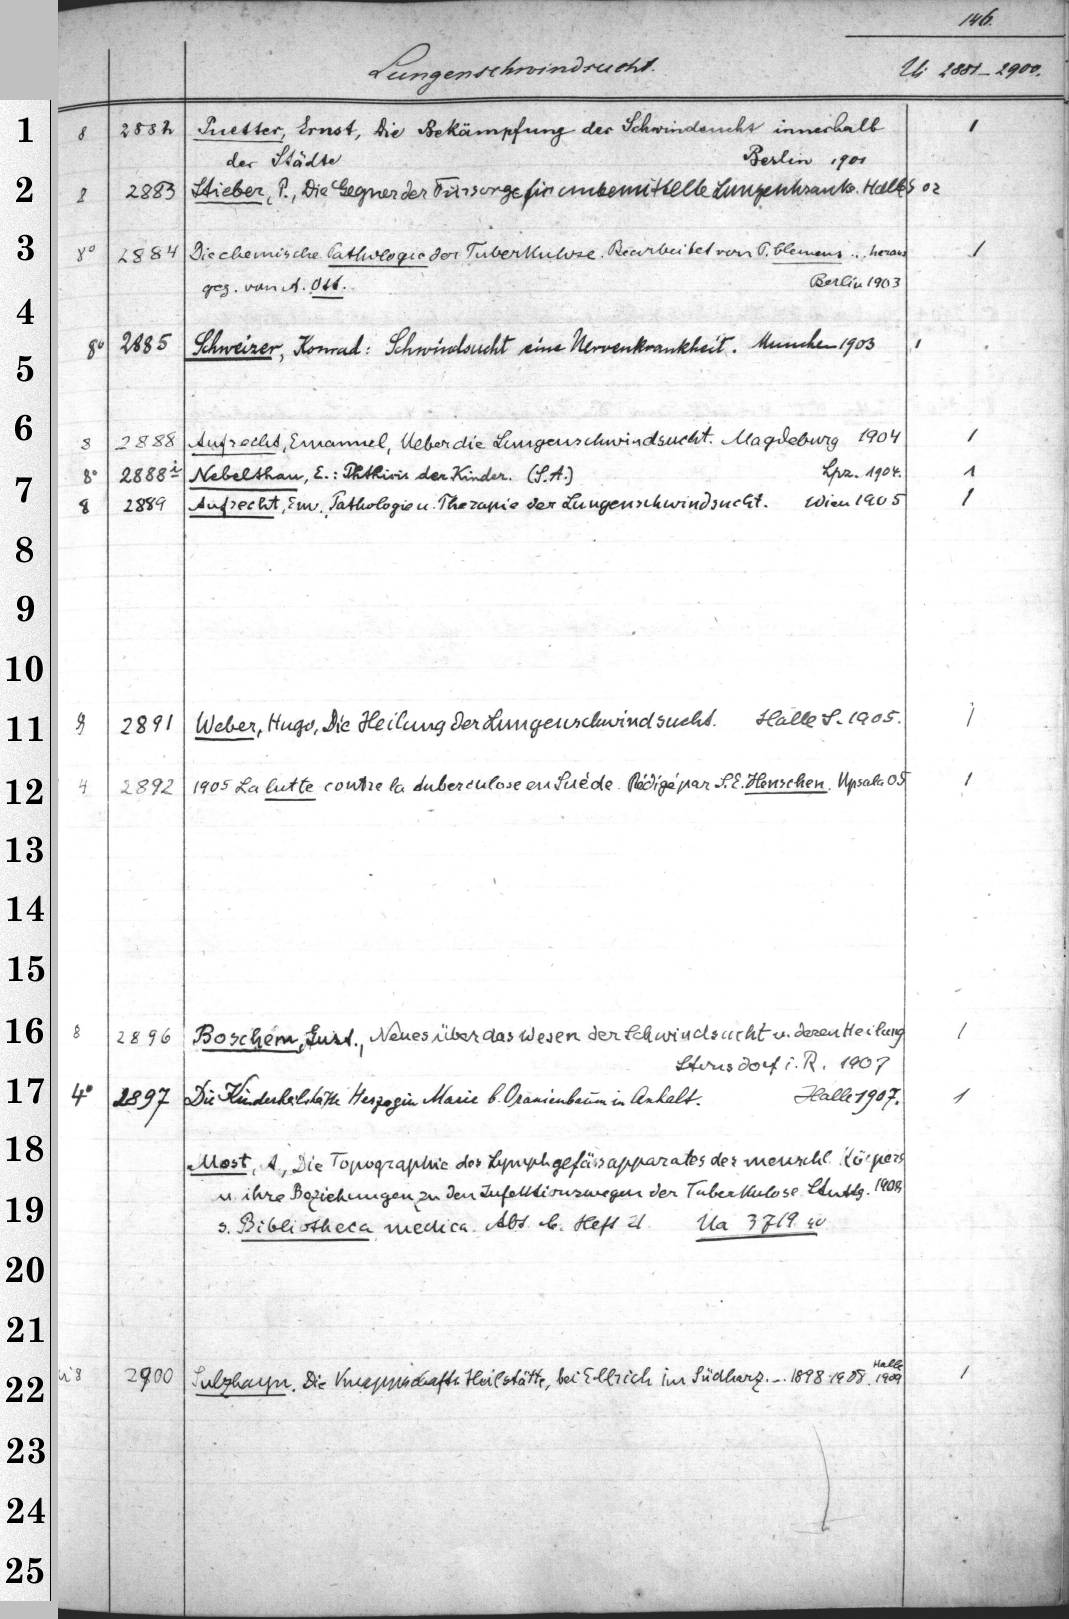 146.
Lungenschwindsucht. Ui 2881-2900.
1 8 2882 Puetter, Ernst, Die Bekämpfung der Schwindsucht innerhalb 1
der Städte Berlin 1901
2 8 2883 Stieber, P., Die Gegner der Fürsorge für unbemittelte Lungenkranke. Halle S 02
3 8° 2884 Die chemische Pathologie der Tuberkulose. Bearbeitet von P. Clemens ... heraus 1
geg. von A. Ott. Berlin 1903
4
8° 2885 Schweizer, Konrad: Schwindsucht eine Nervenkrankheit. München 1903 1
5
6 8 2888 Aufrecht, Emanuel, Ueber die Lungenschwindsucht. Magdeburg 1904 1
8° 2888 i Nebelthau, E.: Phthisis der Kinder. (S.A.) Lpz. 1904. 1
7 8 2889 Aufrecht, Em., Pathologie u. Therapie der Lungenschwindsucht. Wien 1905 1
8
9
10
11 8 2891 Weber, Hugo, Die Heilung der Lungenschwindsucht. Halle S. 1905. 1
12 4 2892 1905 La lutte contre la tuberculose en Suéde. Rédigé par S.E. Henschen. Upsala 05 1
13
14
15
16 8 2896 Boschém, Gust., Neues über das Wesen der Schwindsucht u. deren Heilung 1
i. R. 1907
17 4° 2897 Die Kinderheilstätte Herzogin Marie b. Oranienbaum in Anhalt. Halle 1907. 1
18 Most, A., Die Topographie des Lymphgefässapparates des menschl. Körpers
u. ihre Beziehungen zu den Infektionswegen der Tuberkulose Stuttg. 1908
19 s. Bibliotheca medica. Abt. C. Heft 21 Ua 3719 40
20
21
22 8 2900 Sulzhayn. Die Knappschafts Heilstätte, bei Ellrich im Südharz. - 1898-1908. Halle 1909 1
23
24
25